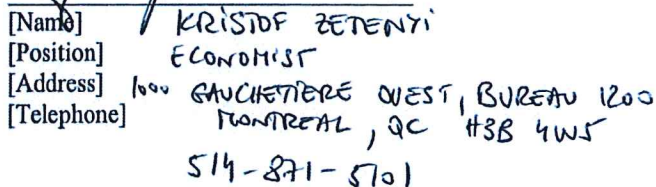 [Name] KRISTOF ZETENYI
[Position] ECONOMIST
[Address] 1000 GAUCHETIERE OUEST, BUREAU 1200
[Telephone] MONTREAL, QC H3B 4W5
514-871-5101